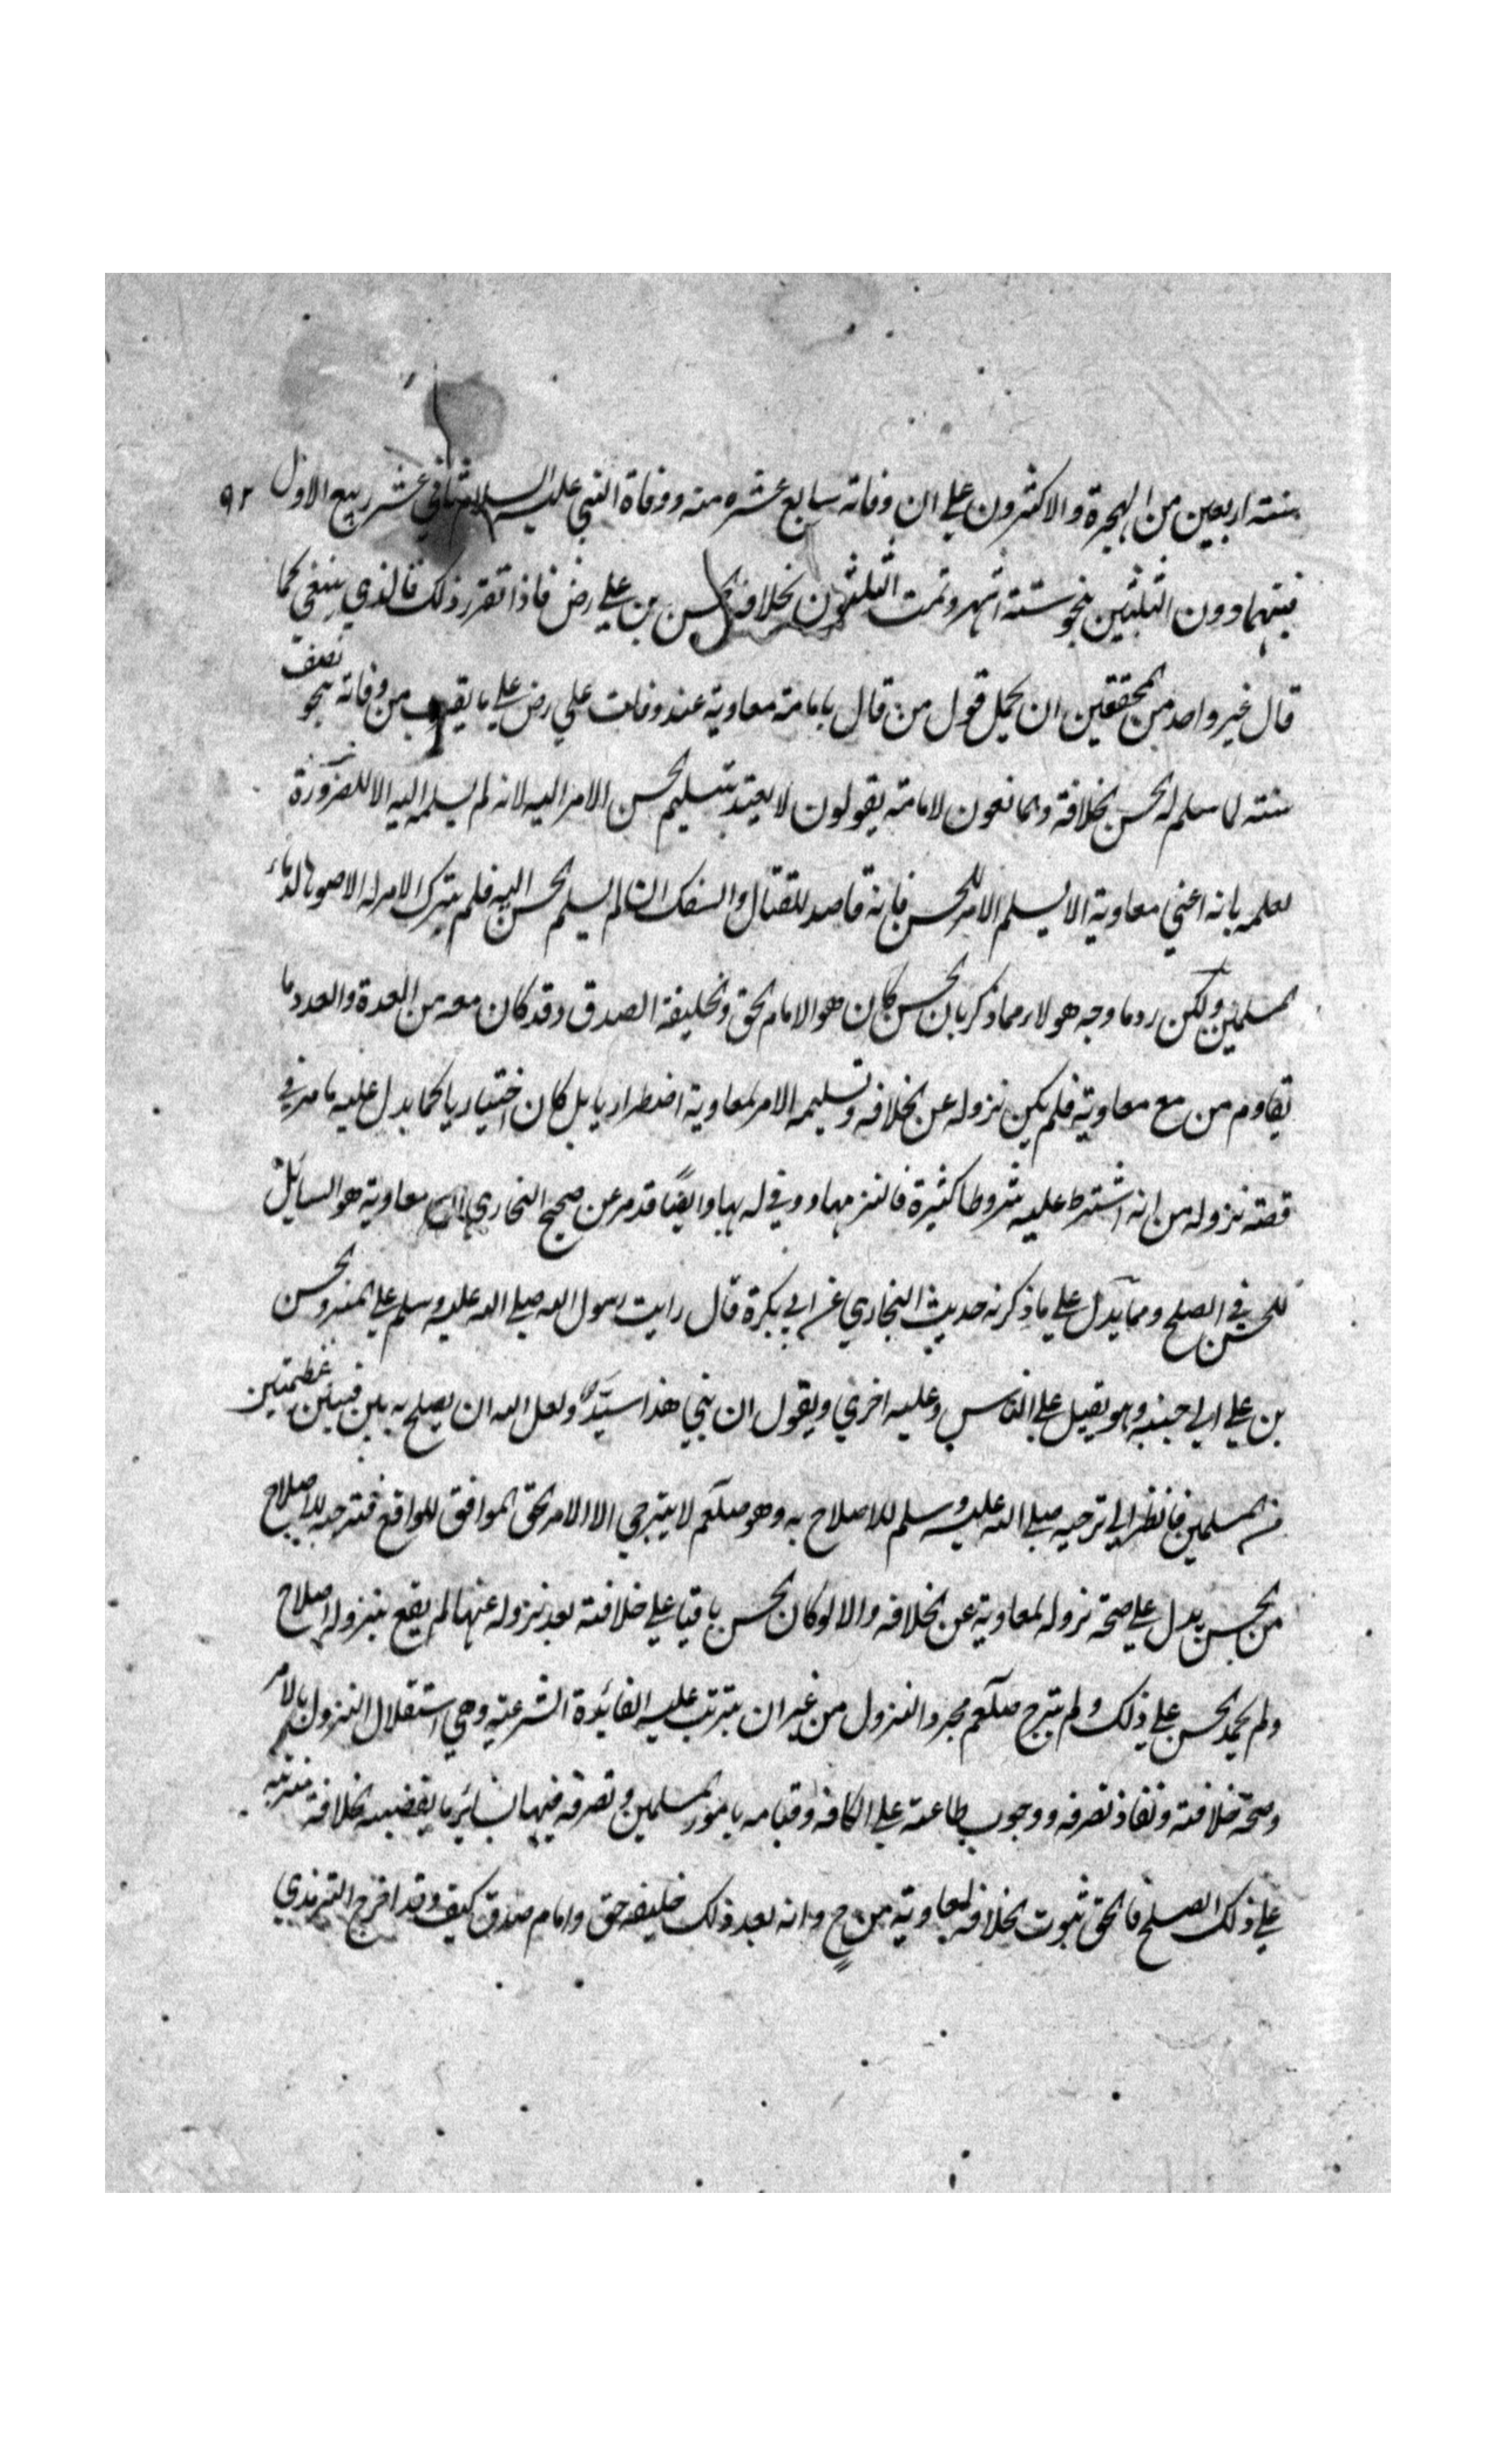 سنته اربعين من الهجرة والاكثرون علي ان وفاته سابع عشره منه ووفاة النبي عليه السلام ثاني عشر ربيع الاول ٩٢
فبينهما دون الثلثين بنحو ستة اشهر وتمت الثلثون بخلافة الحسن بن علي رض فاذا تقرر ذلك فالذي ينبغي كما
قال غير واحد من المحققين ان يحمل قول من قال بامامة معاوية عند وفات علي رض علي ما يقرب من وفاته بنحو نصف
سنته لما سلم له الحسن الخلافة والمانعون لامامته يقولون لا يعتد بتسليم الحسن الامر اليه لانه لم يسلمه اليه الا للضرورة
لعلمه بانه اعني معاوية لا يسلم الامر للحسن فانه قاصد للقتال والسفك ان لم يسلم الحسن اليه فلم يترك الامر له الا صونا لدماء
المسلمين ولكن رد ما وجه هولاء مما ذكر بان الحسن كان هو الامام الحق والخليفة الصدق وقد كان معه من العدة والعدد ما
يقاوم من مع معاوية فلم يكن نزوله عن الخلافة وتسليمه الامر لمعاوية اضطراريا بل كان اختياريا كما يدل عليه ما مر في
قصة نزوله من انه اشترط عليه شروطا كثيرة فالتزمها ووفي له بها وايضًا قد مر عن صحيح البخاري ان معاوية هو السايل
للحسن في الصلح ومما يدل علي ما ذكرته حديث البخاري عن ابي بكرة قال رايت رسول الله صلي الله عليه وسلم علي المنبر والحسن
بن علي الي جنبه وهو يقبل علي الناس وعليه اخري ويقول ان بني هذا سيدٌ ولعل الله ان يصلح به بين فيتين عظيمتين
من المسلمين فانظر الي ترجيه صلي الله عليه وسلم للاصلاح به وهو صلعم لا يترجي الا الامر الحق الموافق للواقع فترجيه للاصلاح
من الحسن يدل علي صحة نزوله لمعاوية عن الخلافة والا لو كان الحسن باقيا علي خلافته بعد نزوله عنها لم يقع بنزوله اصلاح
ولم يحمد الحسن علي ذلك ولم يترج صلعم مجرد النزول من غير ان يترتب عليه الفائدة الشرعية وهي استقلال المنزول له بالامر
وصحة خلافته ونفاذ تصرفه ووجوب طاعته علي الكافة وقيامه بامور المسلمين وتصرفه فيها بسائر ما يقتضيه الخلافة مترتبه
علي ذلك الصلح فالحق ثبوت الخلافة لمعاوية من ح وانه بعد ذلك خليفه حق وامام صدق كيف وقد اخرج الترمذي